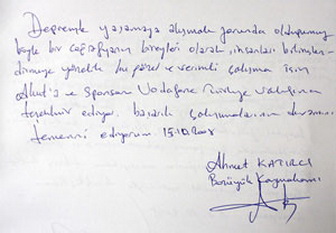 Depremle yaşamaya alışmak zorunda olduğumuz
böyle bir coğrafyanın bireyleri olarak, insanları bilinçlen-
dirmeye yönelik bu güzel ve verimli çalışma için
Akut'a ve sponsor Vodafone Türkiye Vakfına
teşekkür ediyor, başarılı çalışmalarının devamını
temenni ediyorum 15.10.2008
Ahmet KATIRCI
Bozüyük Kaymakamı